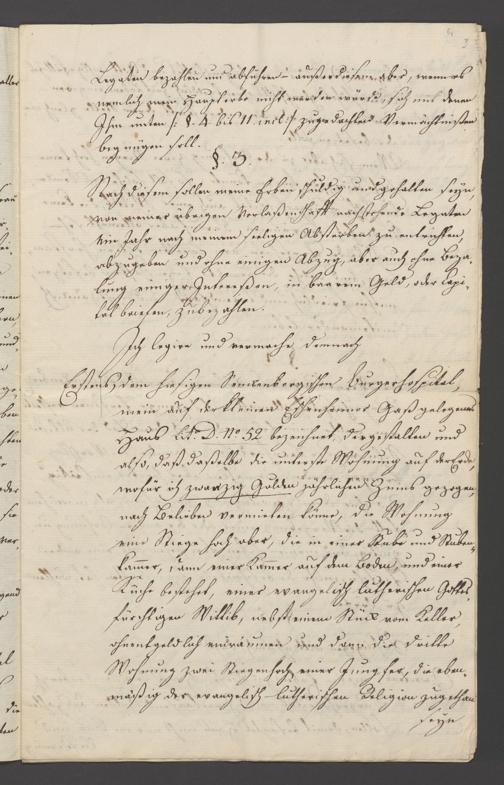 Legaten bezahlen und abführen – außerdiesem aber, wenn es
nemlich mein Haupterbe nicht werden würde, sich mit denen
Ihm unten /: § 4 bis 11 incl: :/ zugedachten Vermächtnißen
begnügen soll.
§ 3
Nach diesem sollen meine Erben schuldig und gehalten seyn
von meiner übrigen Verlaßenschafft nachstehende Legaten
Ein Jahr nach meinem seeligen Absterben zu entrichten
abzugeben und ohne einigen Abzug, aber auch ohne Beza,
lung einiger Interessen, in baarem Geld, oder Capi,
tal briefen, zubezahlen.
Ich legire und vermache demnach
Erstens, dem hiesigen Senckenbergischen Burgerhospital,
mein auf der kleinen Eschenheimer Gaß gelegenes
Haus Lit. D. No 52 bezeichnet, dergestalten und
also, daß daßelbe die unterste Wohnung auf der Erde,
wofür ich zwanzig Gulden jährlichen Zinns gezogen,
nach Belieben vermiethen könne, die Wohnung
eine Stiege hoch aber, die in einer Stube und Stuben,
kammer, dann einer Kamer auf dem Boden, und einer
Küche bestehet, einer evangelisch lutherischen Gottes,
fürchtigen Wittib, nebst einem Stück vom Keller
ohnentgeldlich einräumen und dann die dritte
Wohnung zwei Stiegen hoch einer Jungfer, die eben,
mäßig der evangelisch-lutherischen Religion zugethan
seyn